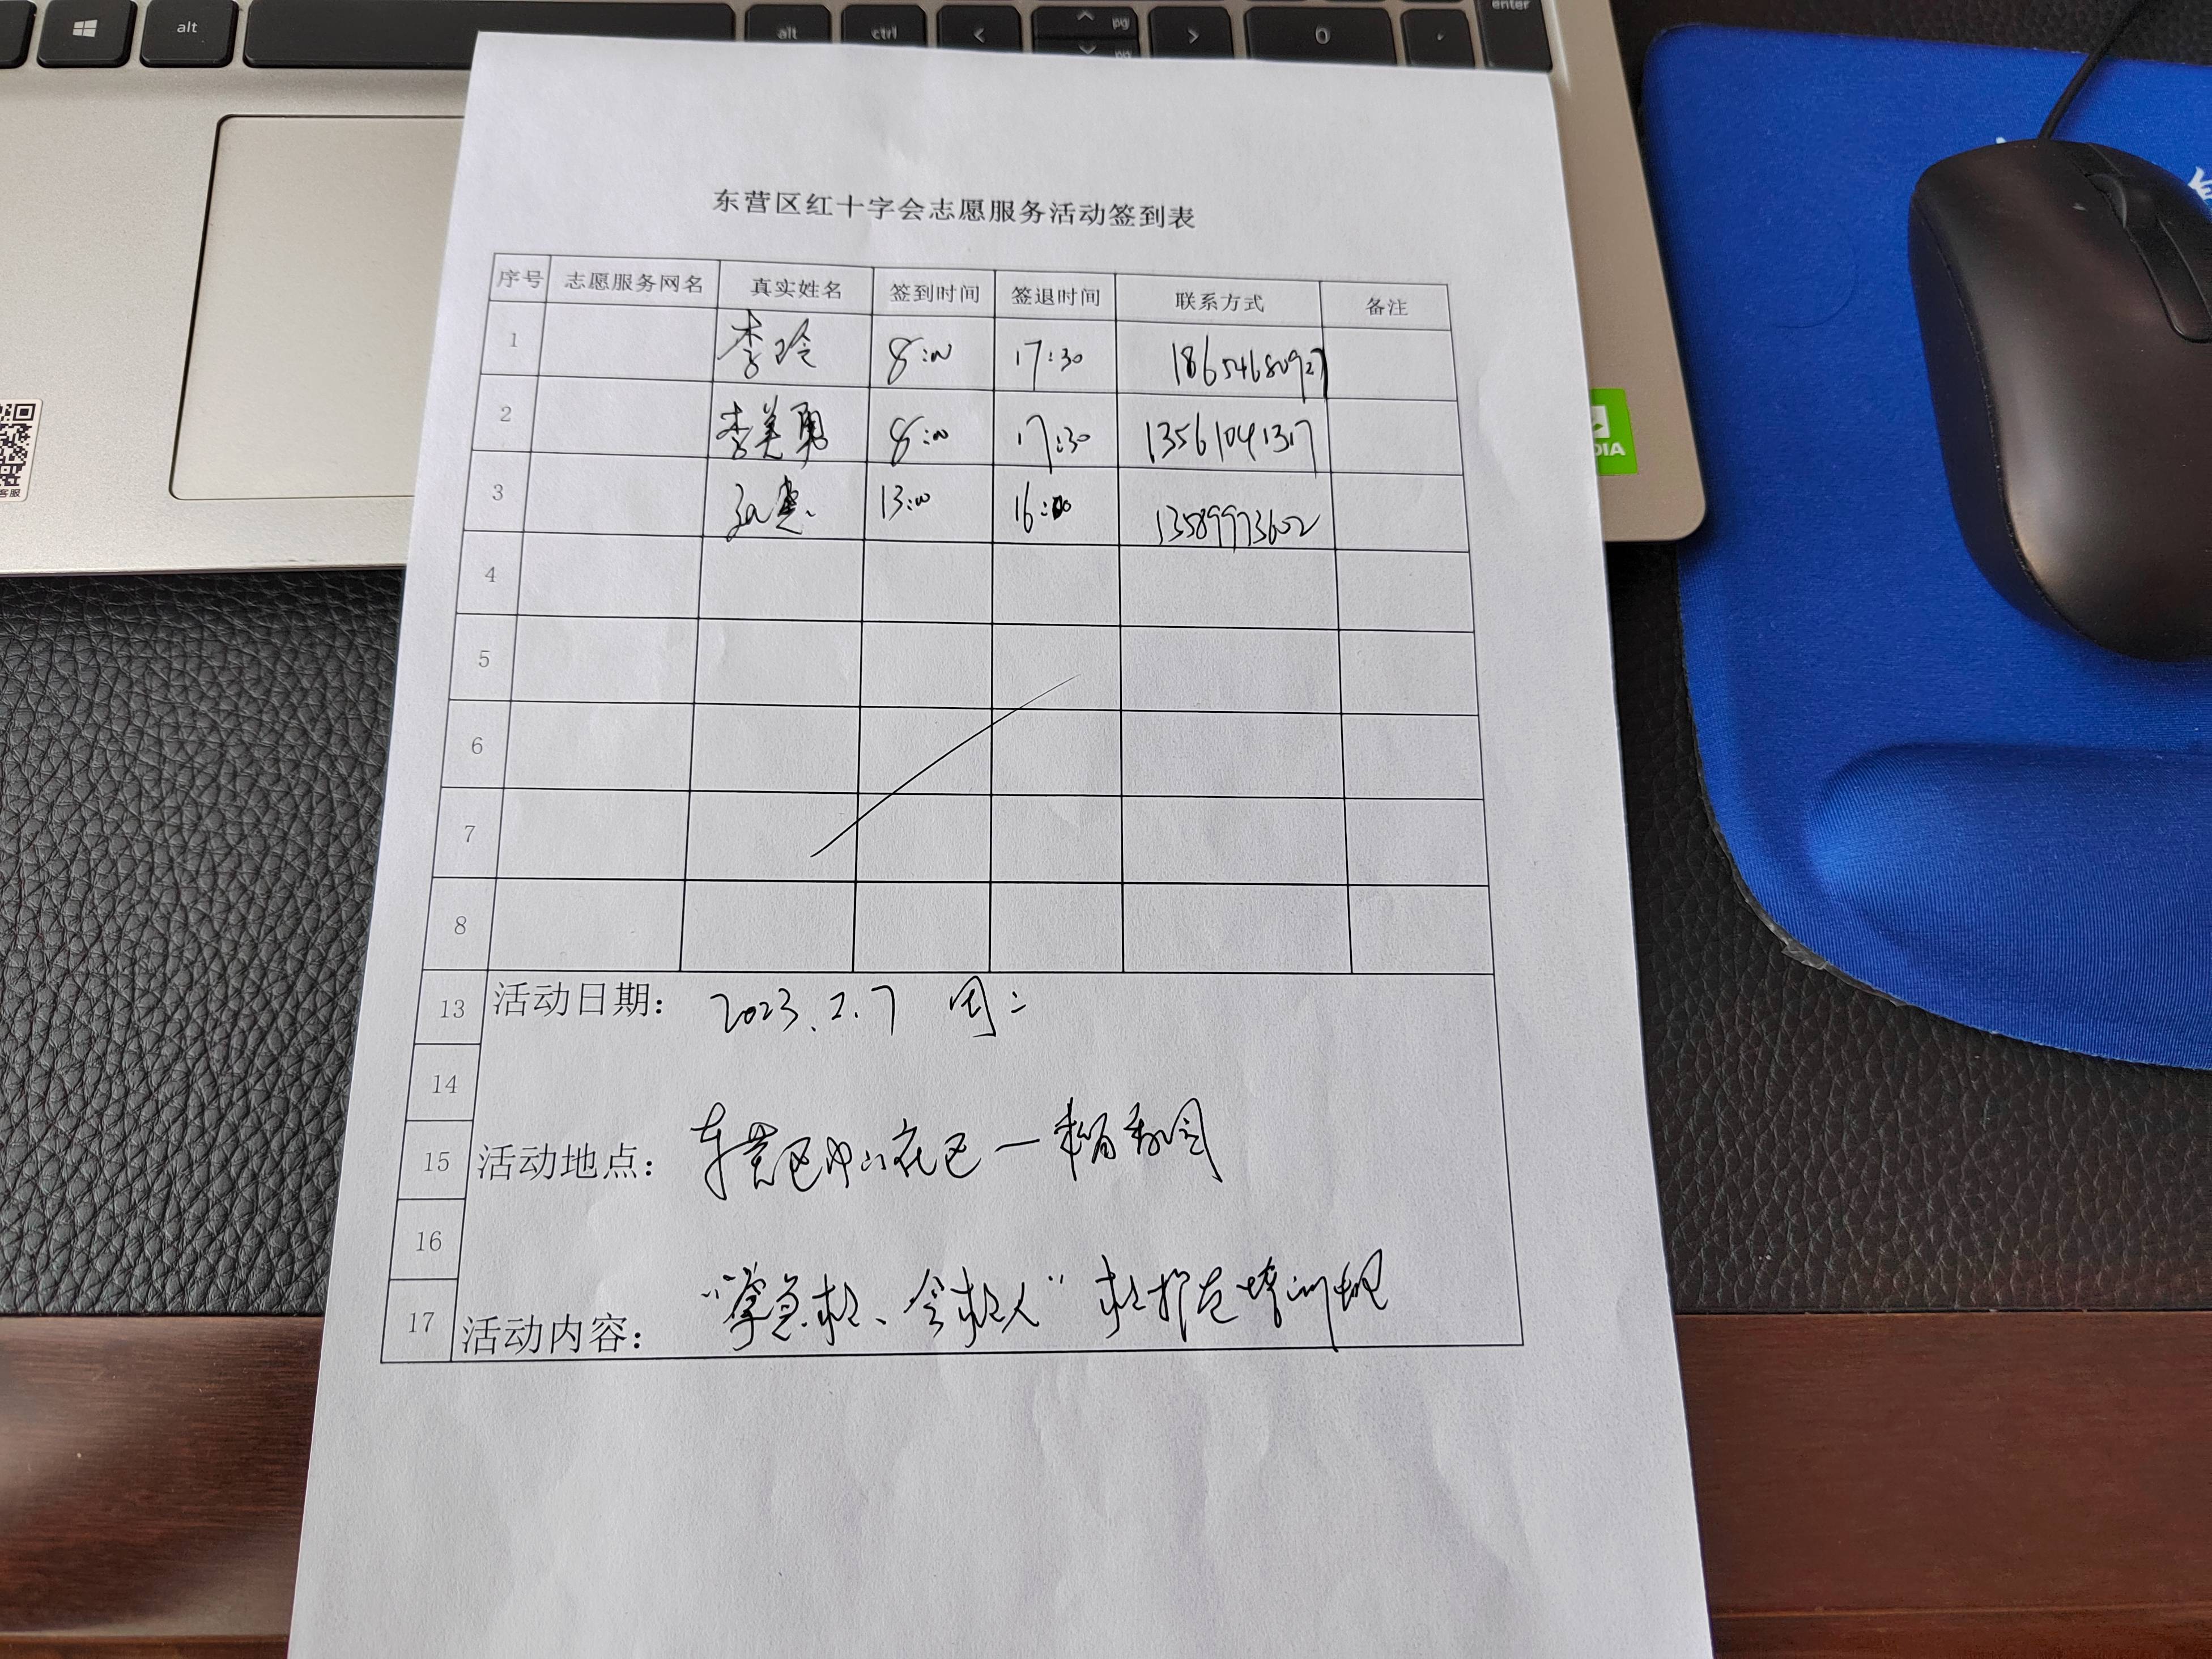 alt
alt
ctrl
<
pg
>
0
.
enter
pg
东营区红十字会志愿服务活动签到表
序号 志愿服务网名 真实姓名 签到时间 签退时间 联系方式 备注
1 李玲 8:00 17:30 18654680927
2 李美勇 8:00 17:30 13561041317
3 13:00 16:00 13589973602
4
5
6
7
8
13 活动日期： 2023.2.7 周二
14
15 活动地点： 东营区中心花色一
16
17 活动内容： “学急救、会救人”救护员培训班
客服
DIA